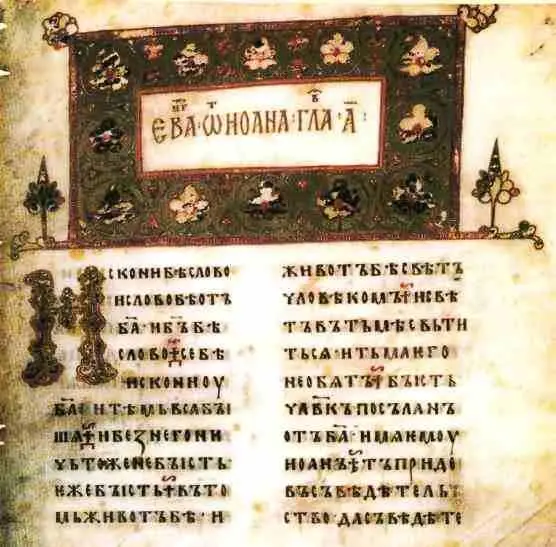 ЕВА҃ · ѾИОАНА · ГЛА · А҃ :
ИСКОНИБѢСЛОВО
ИСЛОВОБѢОТЪ
Б҃А · ИБ҃ЪБѢ
СЛОВО СЕБѢ
ИСКОНИОУ
Б҃А ИТѢМЬВСАБЫ
ШѦ ИБЕЗНЕГОНИ
ЧЬТОЖЕНЕБЫСТЬ
ЕЖЕБЫСТЬ ВЪТО
МЬЖИВОТЪБѢ · И
ЖИВОТЪБѢСВѢТЪ
ЧЛОВѢКОМЪ ИСВѢ
ТЪВЪТЬМѢСВЬТИ
ТЬСѦ · ИТЬМАИГО
НЕОБѦТЪ БЫСТЬ
ЧЛ҃ВКЪПОСЪЛАНЪ
ОТЪБ҃А · ИМѦЕМОУ
ИОАНЪ ТЪПРИДЕ
ВЪСЪВѢДѢТЕЛЬ
СТВО ДАСЪВѢДѢТЕ